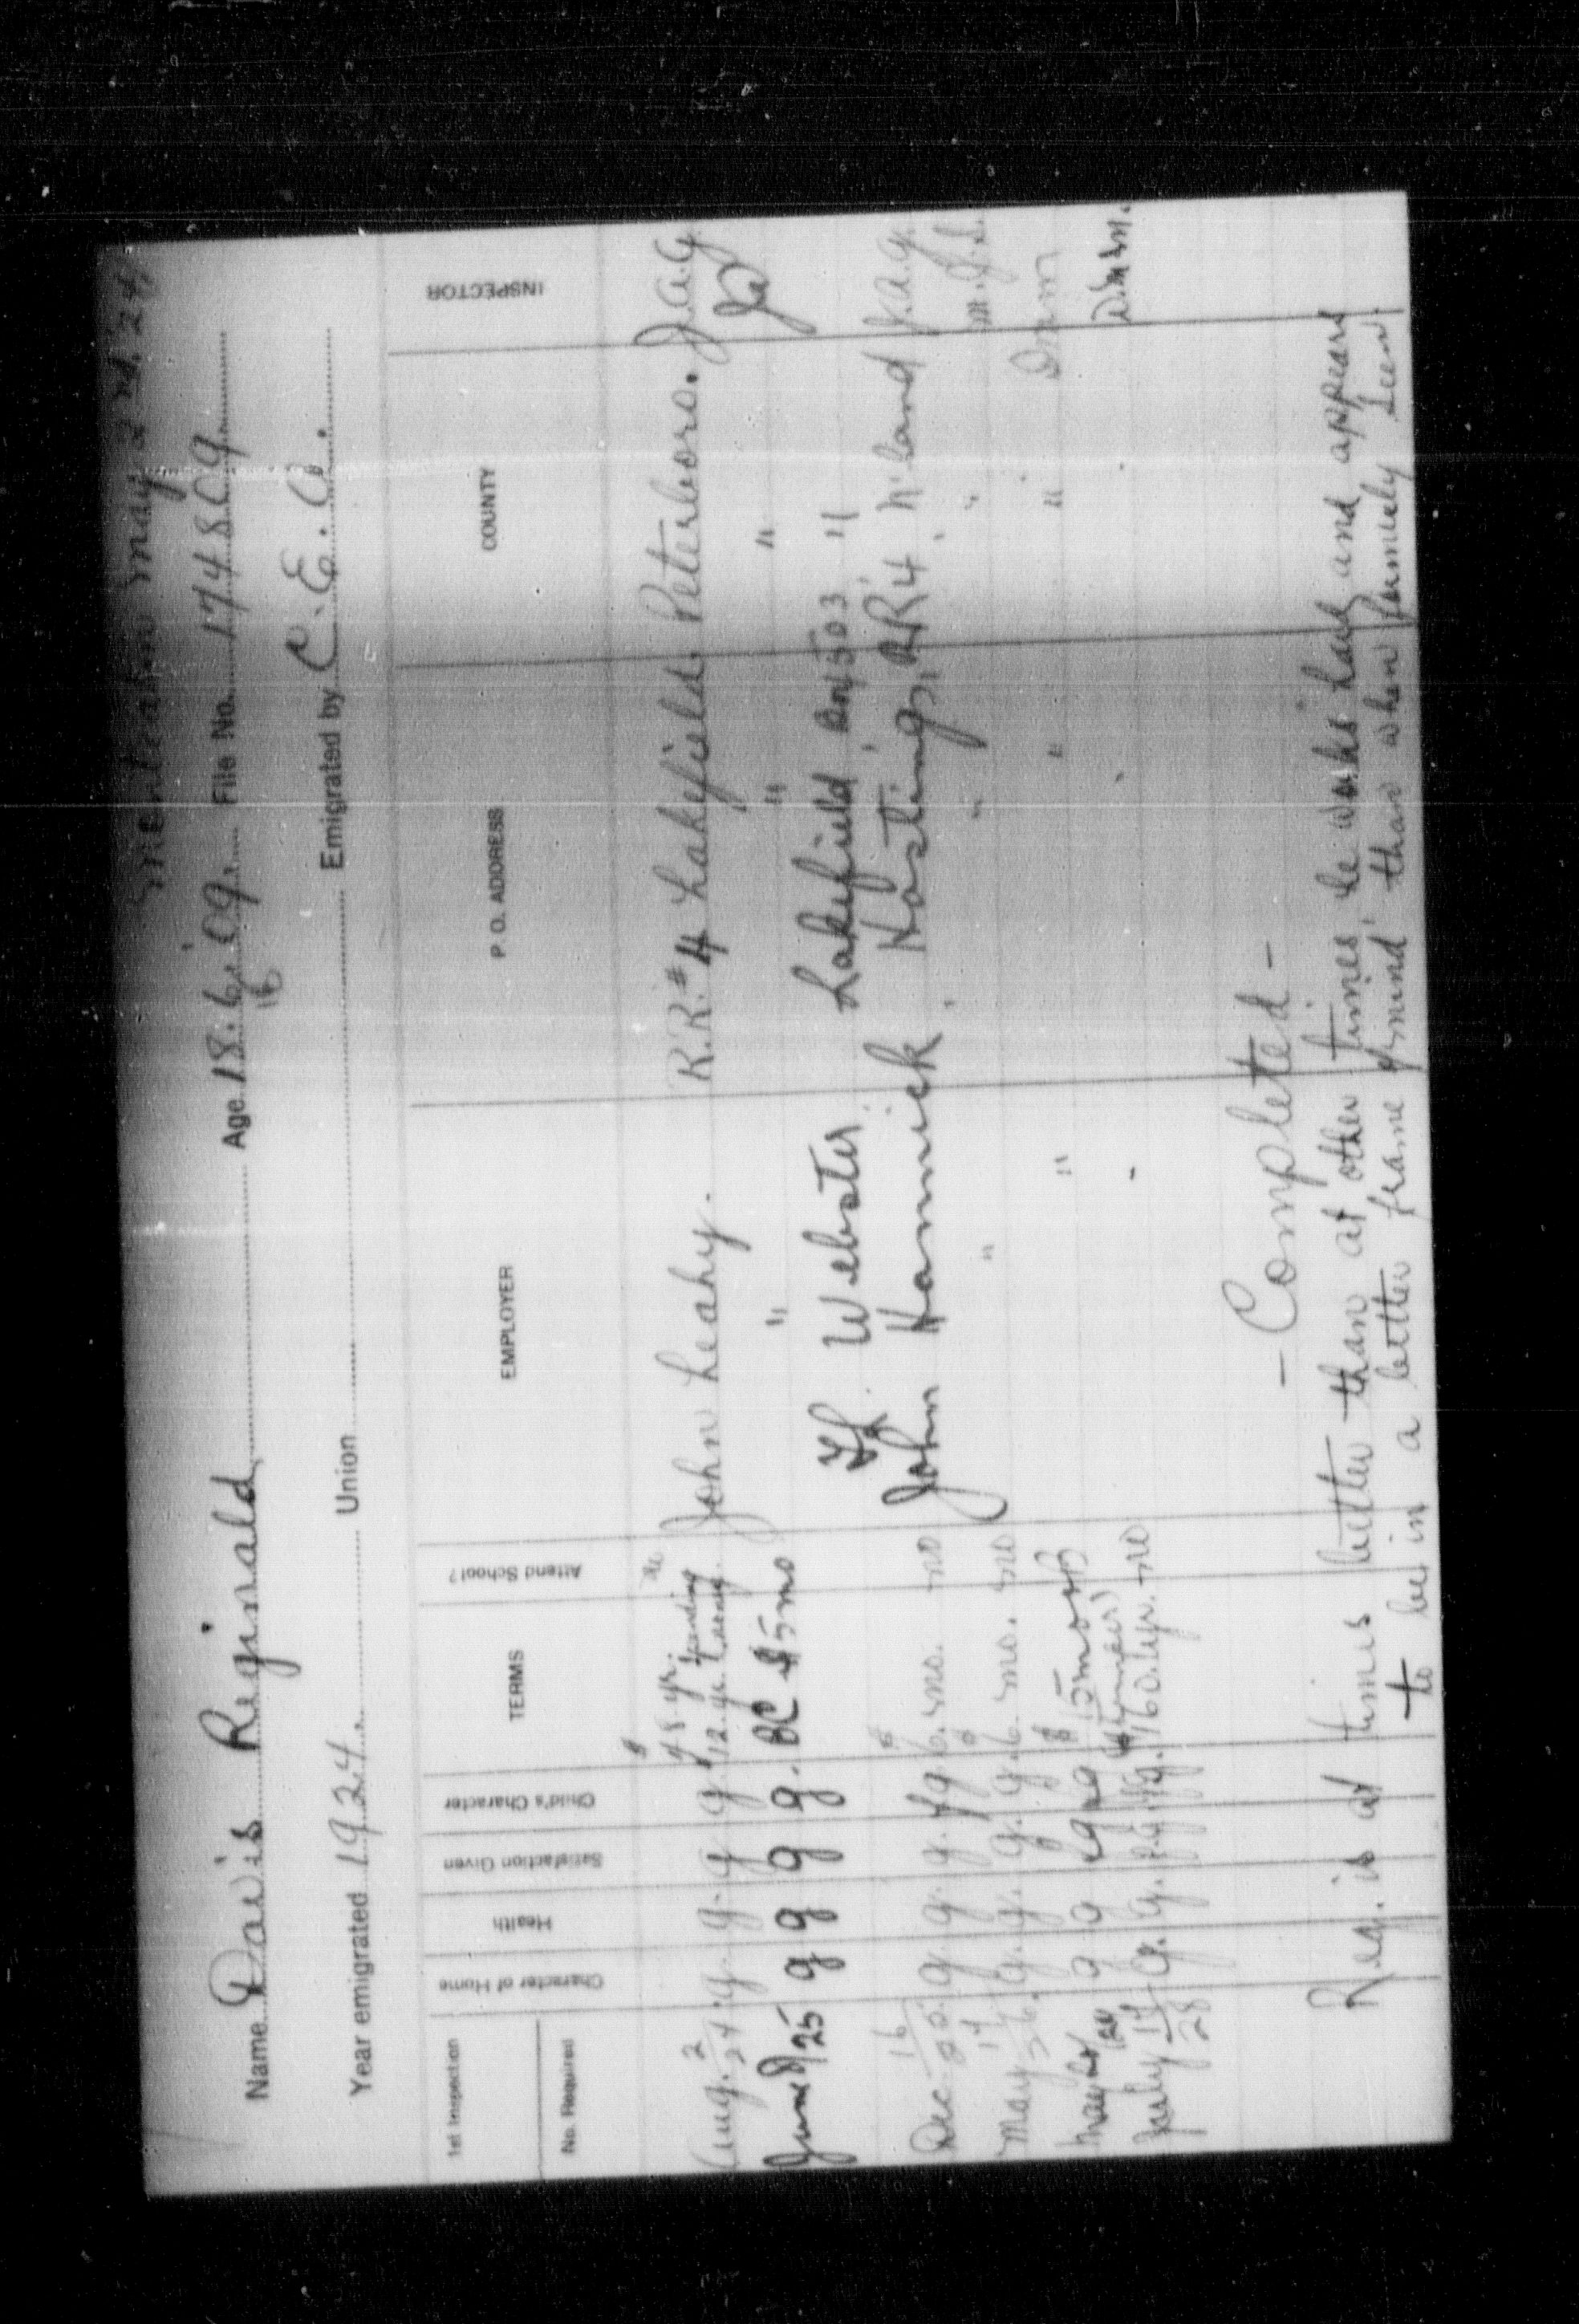 Montcalm May 2nd. 24.
Name Davis Reginald Age 18.6.'09. File No. 174809
16
Year emigrated 1924. Union Emigrated by C.E.O.
1st Inspection
No. Required
Character of Home Health Satisfaction Given Child's Character TERMS Attend School? EMPLOYER P. O. ADDRESS COUNTY INSPECTOR
Aug. 2/24. g. g. g g. John Leahy. R.R.#4 Lakefield, Peterboro. J.A.G.
June 9/25 g g g g. $5 mo " " "
H. Webster Lakefield 503 "
Dec 16 g g. g. fg 6. mo. no John Hammick Hastings, RR4 N'land J.A.G.
May 17/26. g. g. g. g. 6. mo. no " " " M.G.S.
May g g fg $15 month " " " DMM
July 17/28 g. g. $160. 1yr. no D.M.M.
- Completed -
Reg. is at times better than at other times, he works hard and appears
to be in a better frame of mind than when formerly seen.